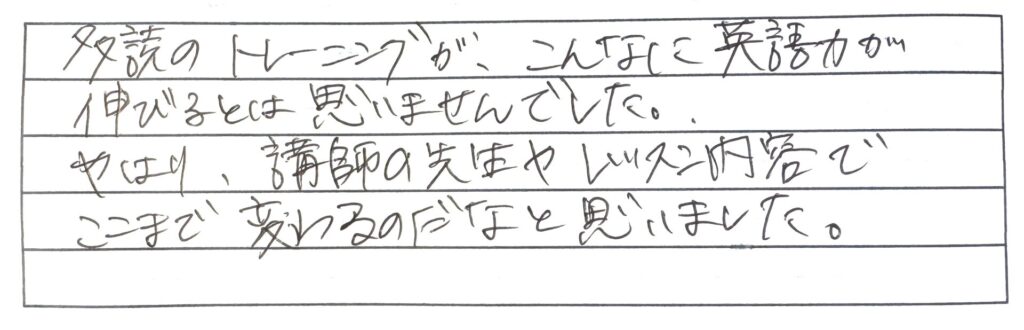 多読のトレーニングが、こんなに英語力が
伸びるとは思いませんでした。
やはり、講師の先生やレッスン内容で
ここまで変わるのだなと思いました。